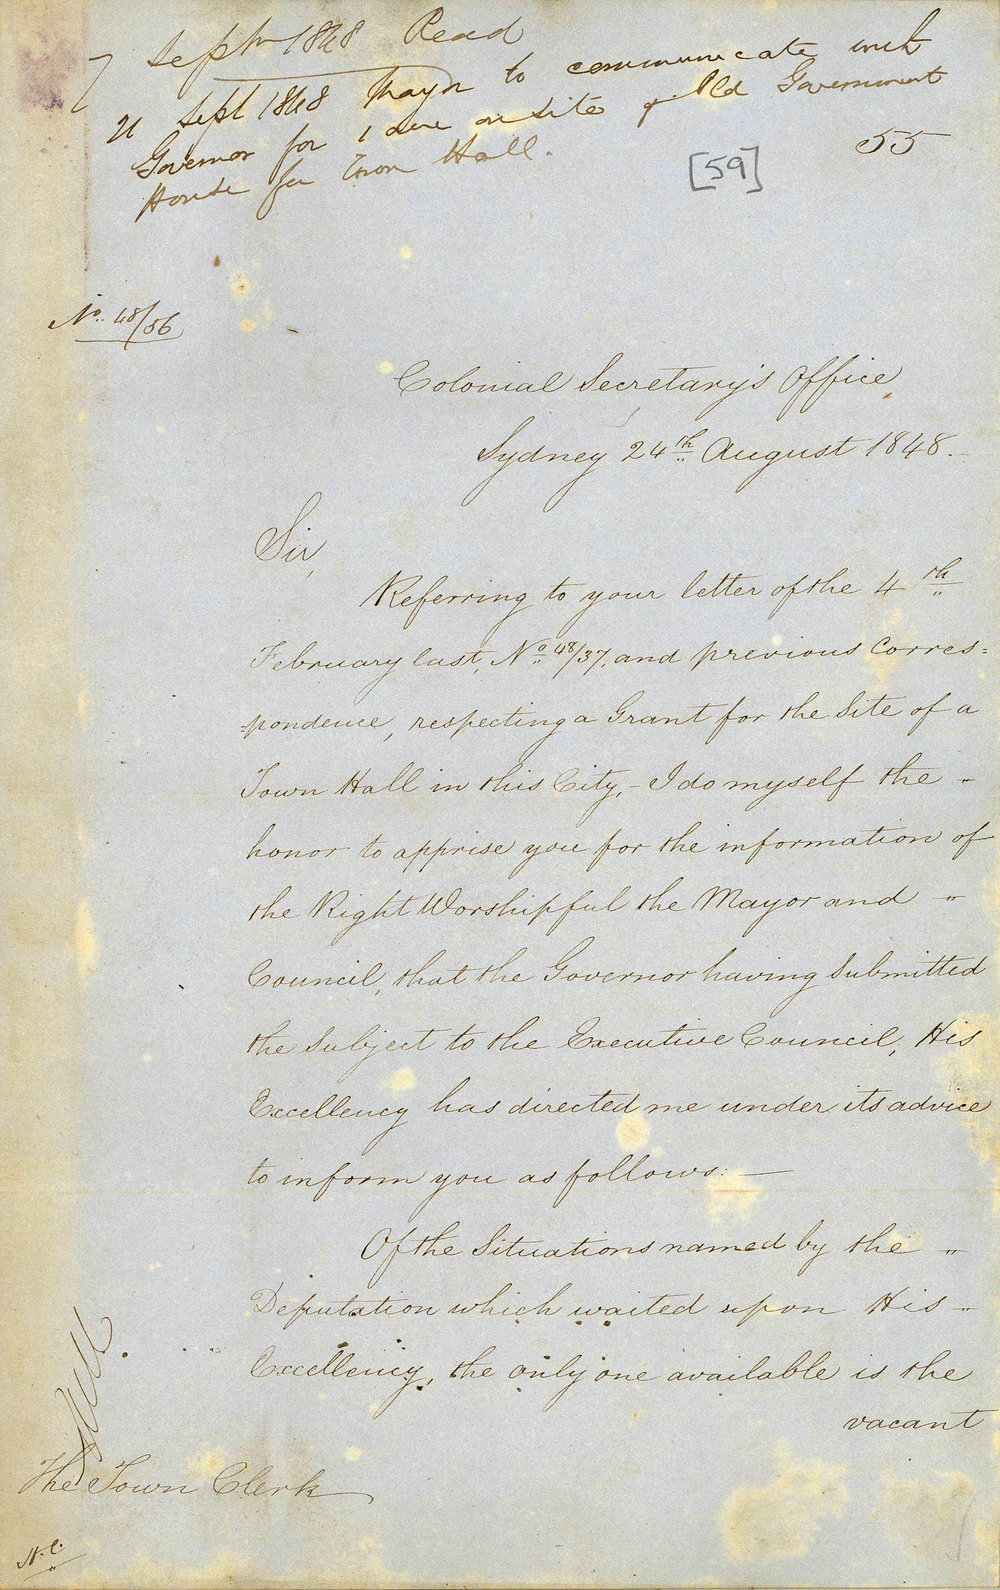 7 Septr 1848 Read
21 Sept 1848 Mayor to communicate with
Governor for 1 acre on site of Old Government
House for Town Hall.
55
[59]
No. 48/56
Colonial Secretary's Office,
Sydney 24th August 1848.
Sir,
Referring to your letter of the 4th
February last, No. 48/37, and previous Corres=
=pondence, respecting a Grant for the Site of a
Town Hall in this City, - I do myself the "
honor to apprise you for the information of
the Right Worshipful the Mayor and "
Council, that the Governor having Submitted
the Subject to the Executive Council, His
Excellency has directed me under its advice
to inform you as follows: —
Of the Situations named by the "
Deputation which waited upon His "
Excellency, the only one available is the
vacant
The Town Clerk